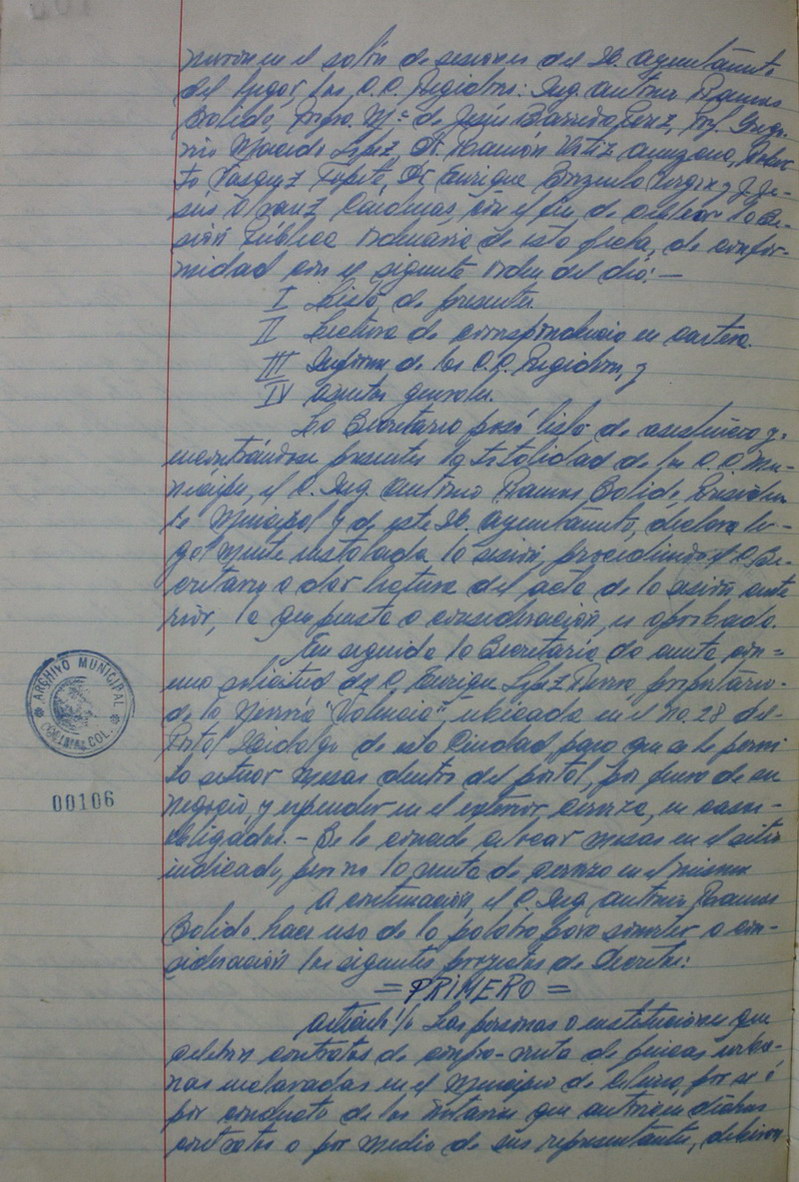 nieron en el salón de sesiones del H. Ayuntamiento
del lugar, los C.C. Regidores: Ing. Antonio Ramos
Salido, Profra. Ma. de Jesús Barreda, Prof. Grego-
rio Macedo López, Dr. Ramón Ortiz, Rober-
to Vásquez, Dr. Enrique y J. Je-
sús Cárdenas con el fin de celebrar la Se-
sión Pública Ordinaria de esta fecha, de confor-
midad con el siguiente orden del día:—
I Lista de presentes.
II Lectura de correspondencia en cartera.
III Informe de los C.C. Regidores, y
IV Asuntos generales.
La Secretaría pasó lista de asistencia y
encontrándose presentes la totalidad de los C.C. Mu-
nícipes, el C. Ing. Antonio Ramos Salido, Presiden-
te Municipal y de este H. Ayuntamiento, declara le-
galmente instalada la sesión, procediendo el C. Se-
cretario a dar lectura del acta de la sesión ante-
rior, la que puesta a consideración, es aprobada.
En seguida la Secretaría da cuenta con
una solicitud del C. Enrique López, propietario
de la Nevería "Valencia", ubicada en el No. 28 del
Portal Hidalgo de esta Ciudad, para que se le permi-
ta situar mesas dentro del portal, por fuera de su
negocio, y expender en el exterior, cerveza,
obligados.— Se le concede colocar mesas en el sitio
indicado, pero no la venta de cerveza en el mismo
A continuación, el C. Ing. Antonio Ramos
Salido hace uso de la palabra para someter a con-
sideración los siguientes proyectos de Decretos:
= PRIMERO =
Artículo 1/o Las personas o instituciones que
celebren contratos de compra-venta de fincas urba-
nas enclavadas en el Municipio de Colima, por sí ó
por conducto de los Notarios que autoricen dichos
contratos o por medio de sus representantes, deberán
ARCHIVO MUNICIPAL
COLIMA, COL.
00106